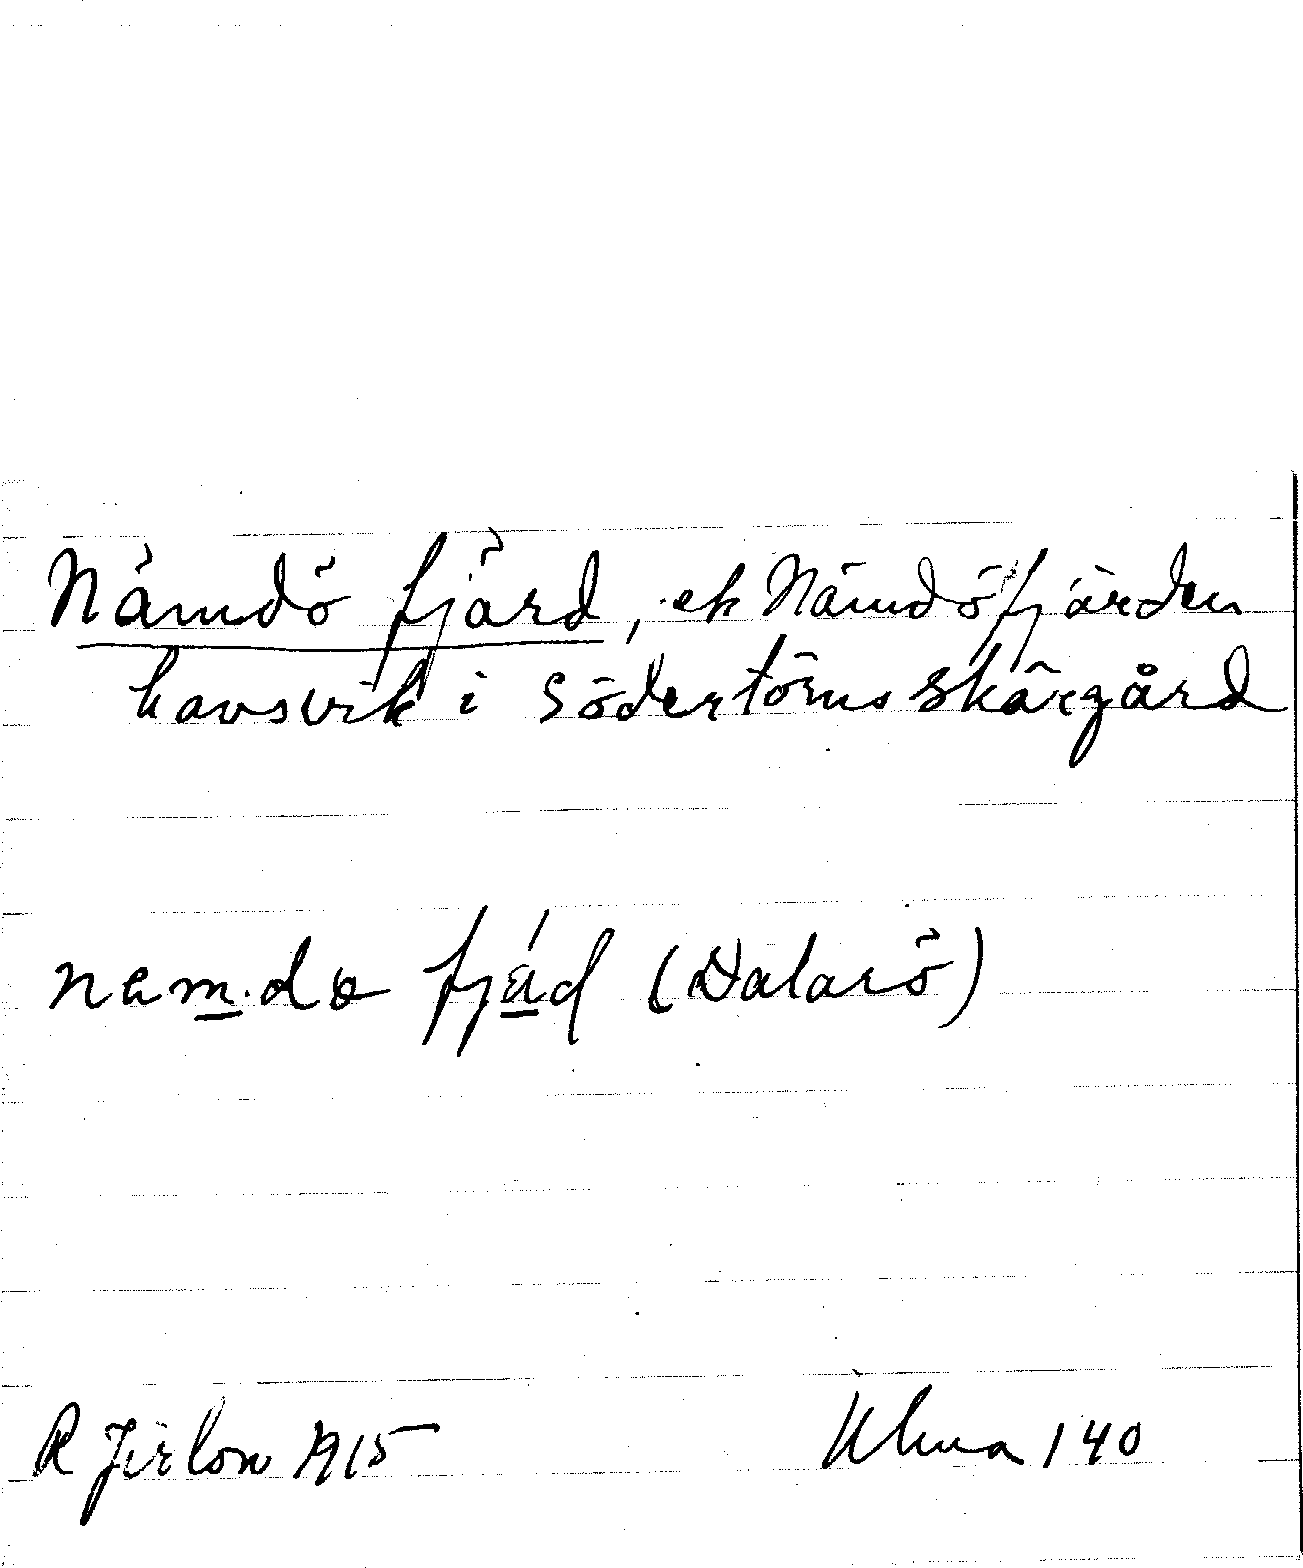 Nämdö fjärd, ek Nämdöfjärden
havsvik i Södertörns skärgård
nam.dø fjäd (Dalarö)
R Jirlow 1915
Uhma 140